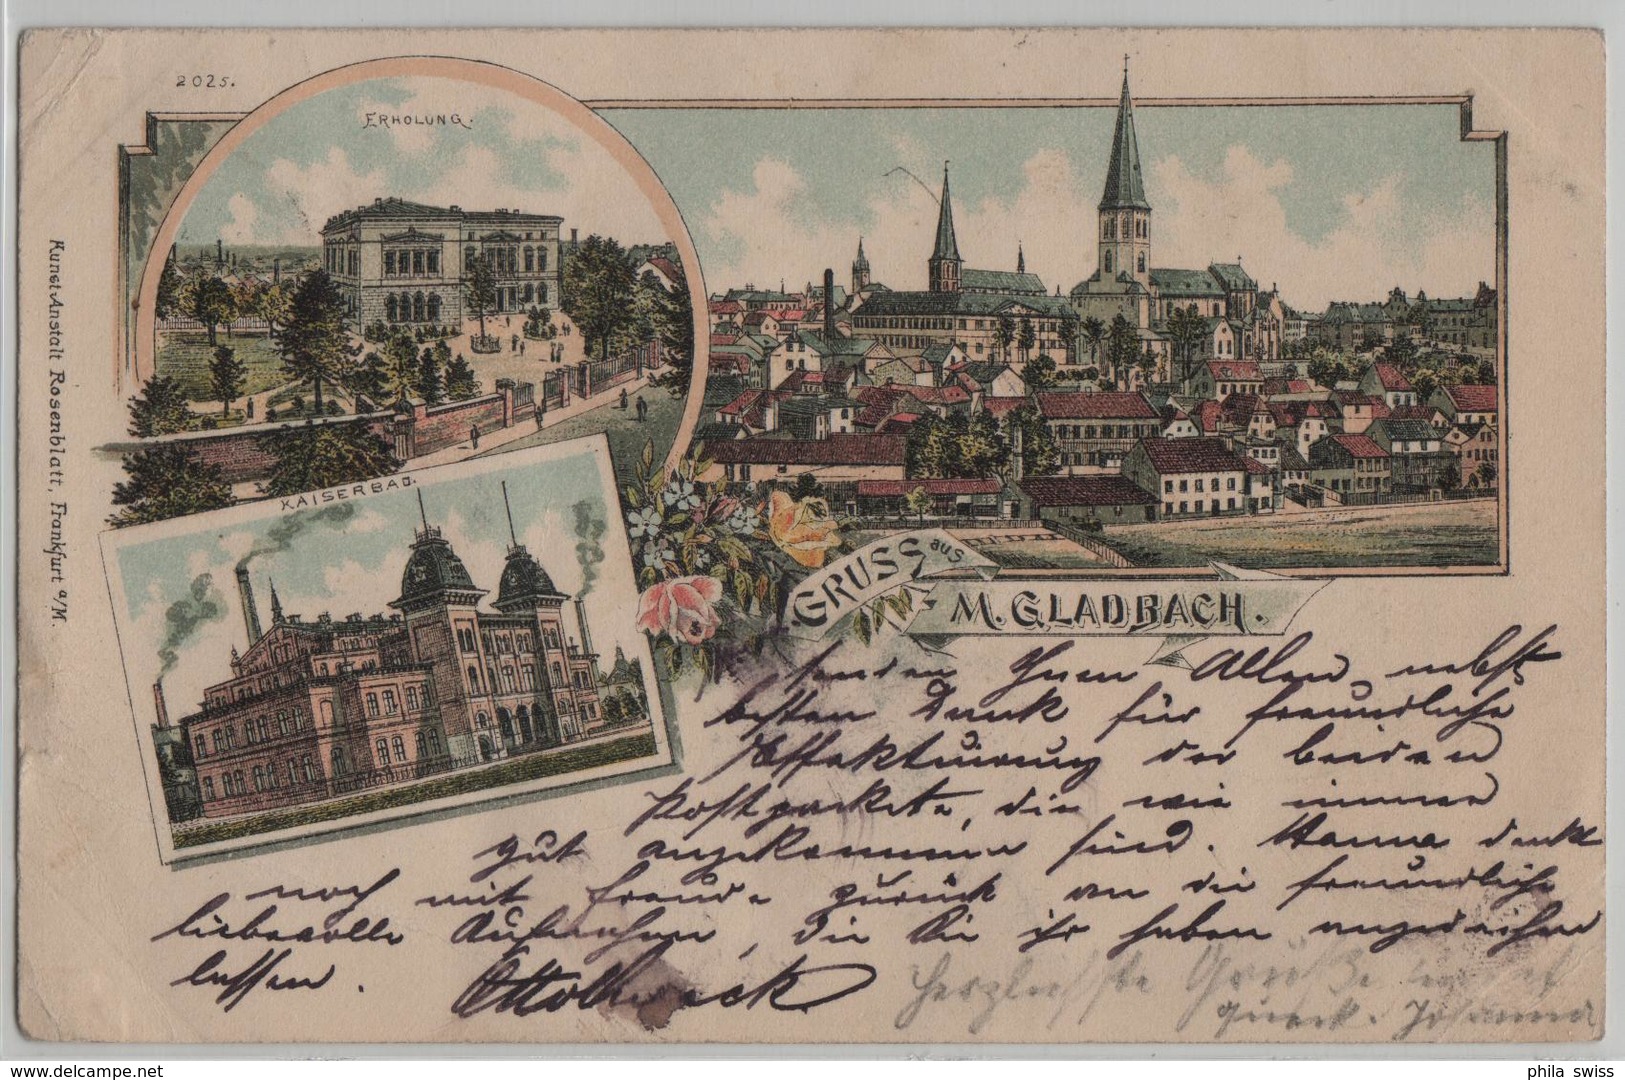 2025.
ERHOLUNG.
KAISERBAD.
Kunst-Anstalt Rosenblatt, Frankfurt a/M.
GRUSS aus
M. GLADBACH.
senden Ihnen Allen nebst
besten Dank für freundliche
Effektuirung der beiden
Postpackete, die wie immer
gut angekommen sind. Hanna denkt
noch mit Freude zurück an die freundliche
liebevolle Aufnahme, die Sie ihr haben angedeihen
lassen. Otto
Herzlichste Grüße
Johanna
delcampe.net
phila swiss